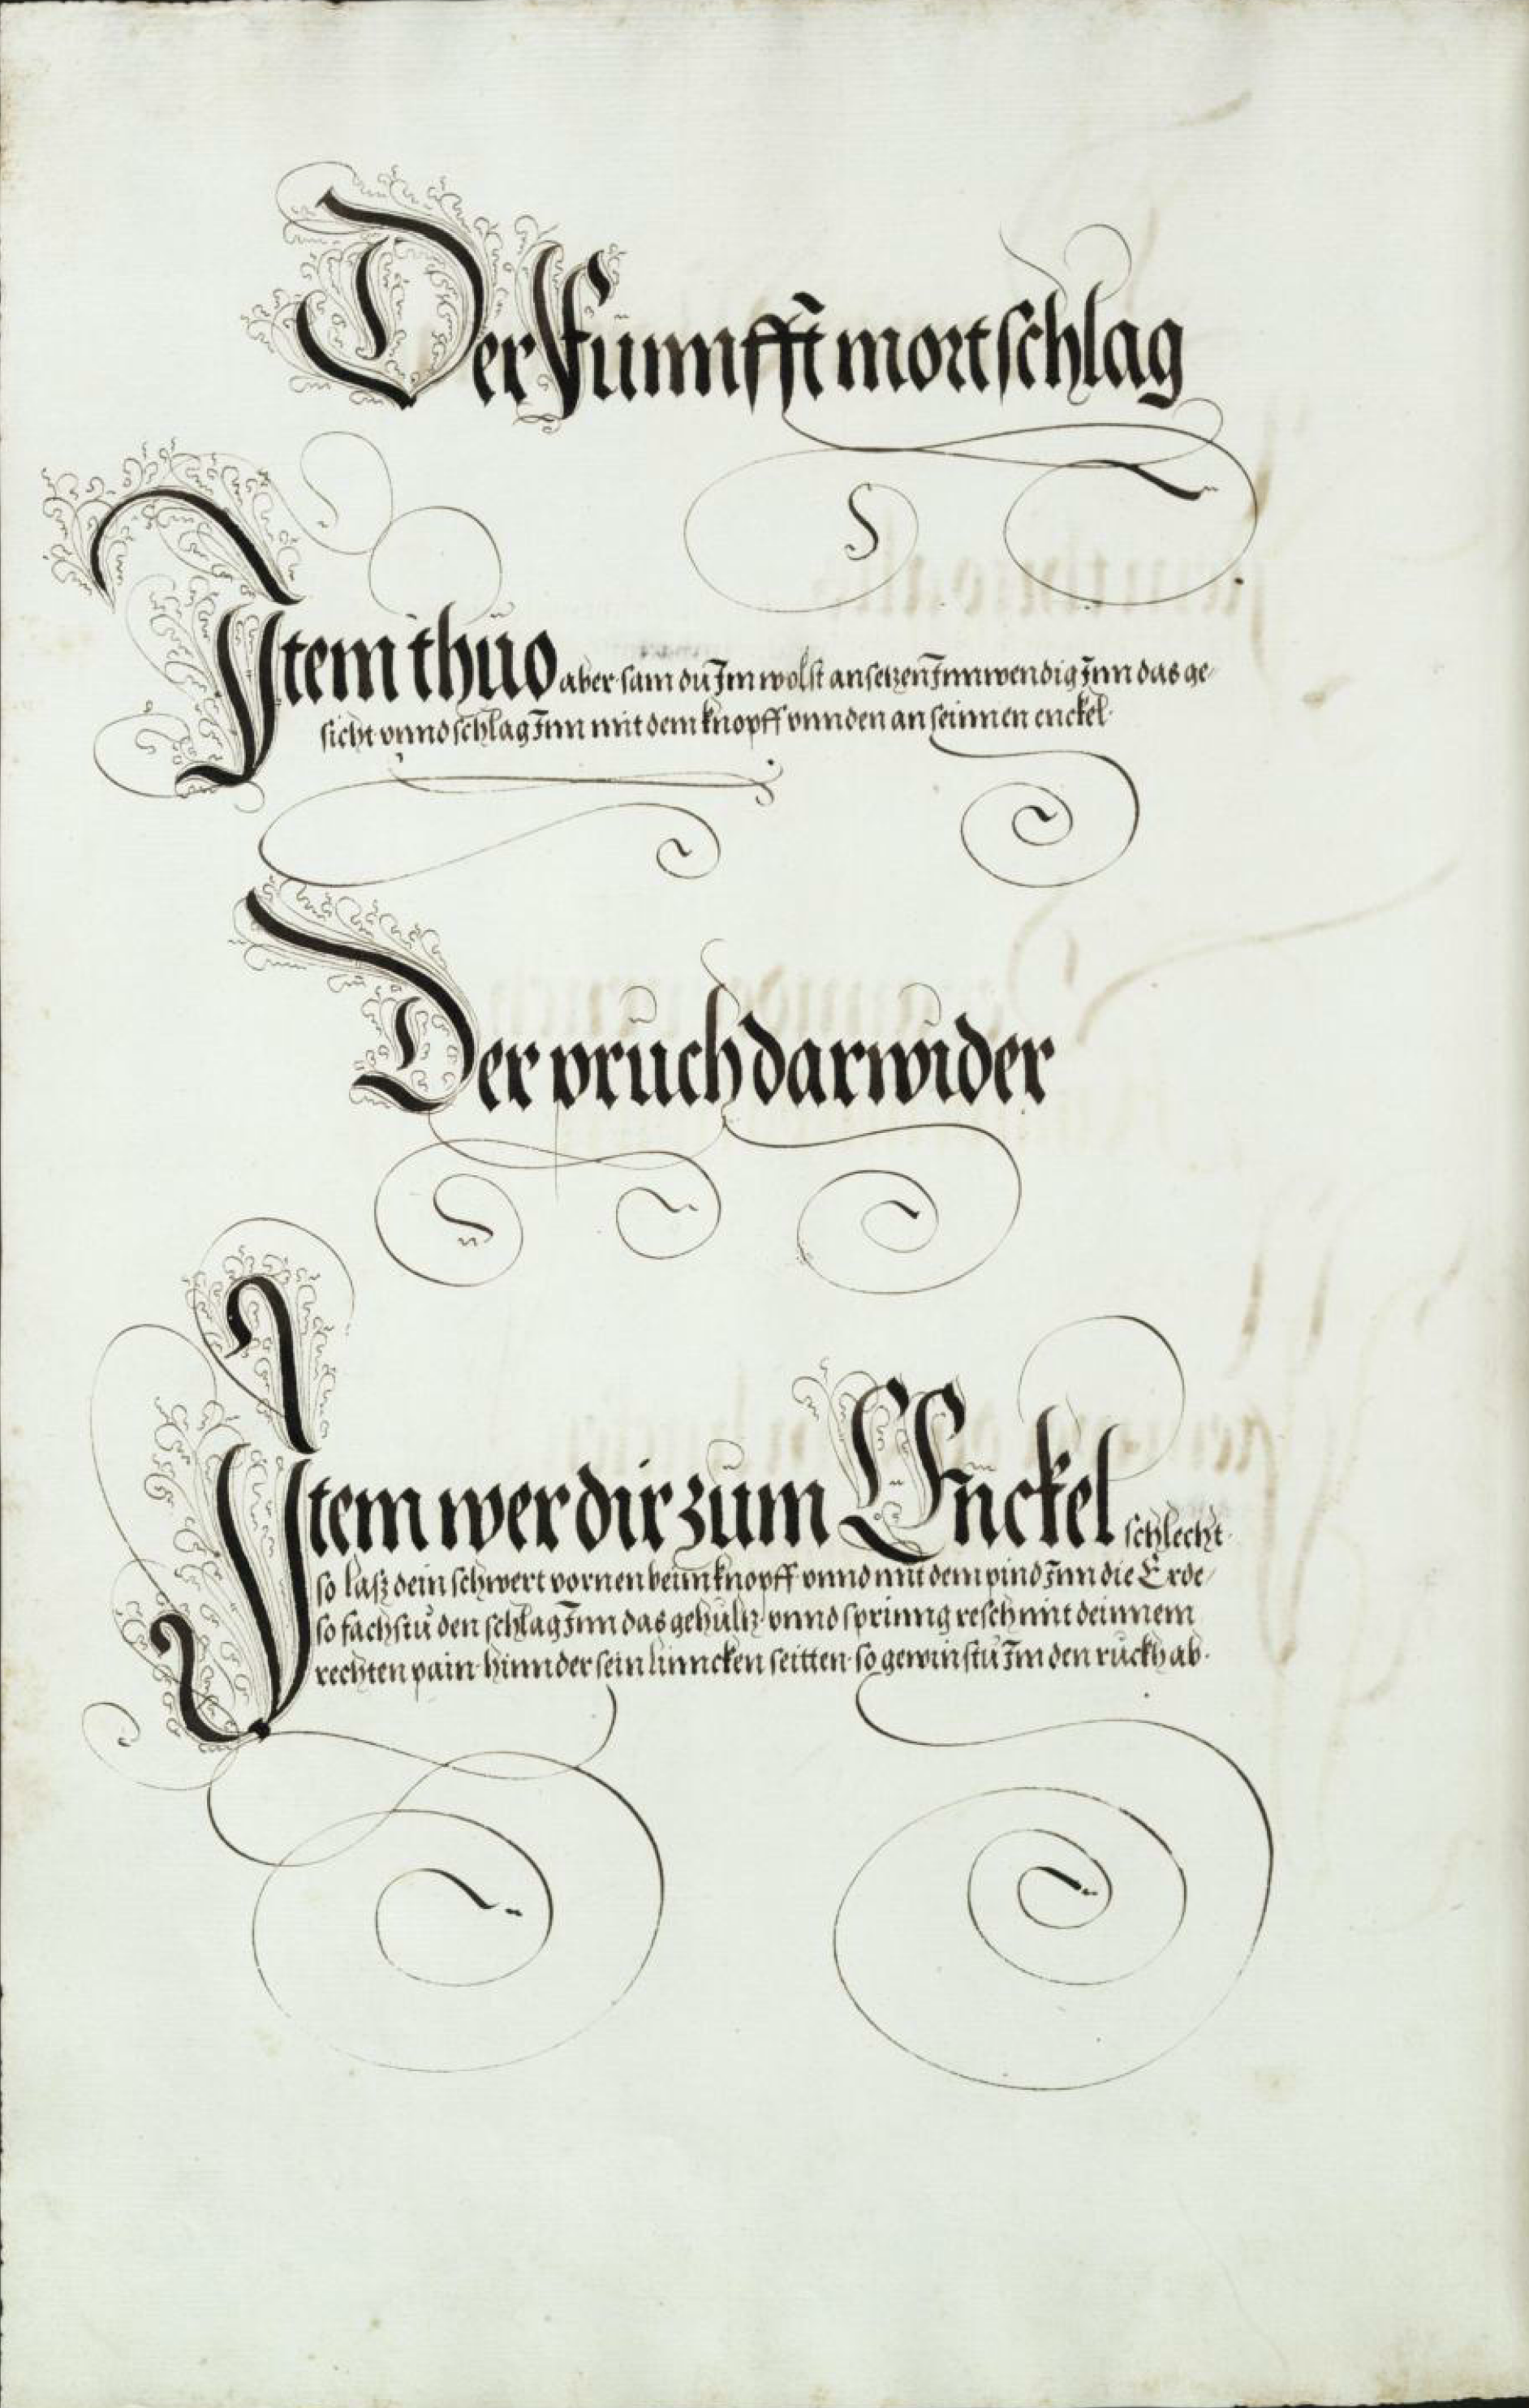 Der Fünnfft mortschlag
Item thüo aber sam dü Im wolst ansetzen Innwendig Inn das ge-
sicht vnnd schlag Inn mit dem knopff vnnden an seinnen enckel.
Der pruch darwider
Item wer dir züm Enckel schlecht.
so lasz dein schwert vornen beim knopff vnnd mit dem pind Inn die Erde/
so fachstü den schlag Inn das gehültz. vnnd sprinng resch mit deinnem
rechten pain. hinnder sein linncken seitten. so gewinstü Im den rückh ab.